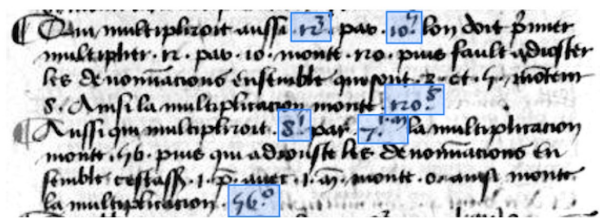 ¶ Qui multiplieroit aussi .12³. par .10⁵. Lon doit p̃mier
multiplier .12. par .10. monte .120. puis fault adiouster
les denominacions ensemble qui sont .3. et .5. mõtent
8. Ainsi la multiplicacion monte .120.⁸
¶ Aussi qui multipliroit .8¹. par .7.¹·ᵐ̃ la multiplicacion
monte .56. puis qui adiouste les denominacions en
semble cestass̃. 1. p̃. avec .1. m̃. monte .0. ainsi monte
la multiplicacion .56.⁰